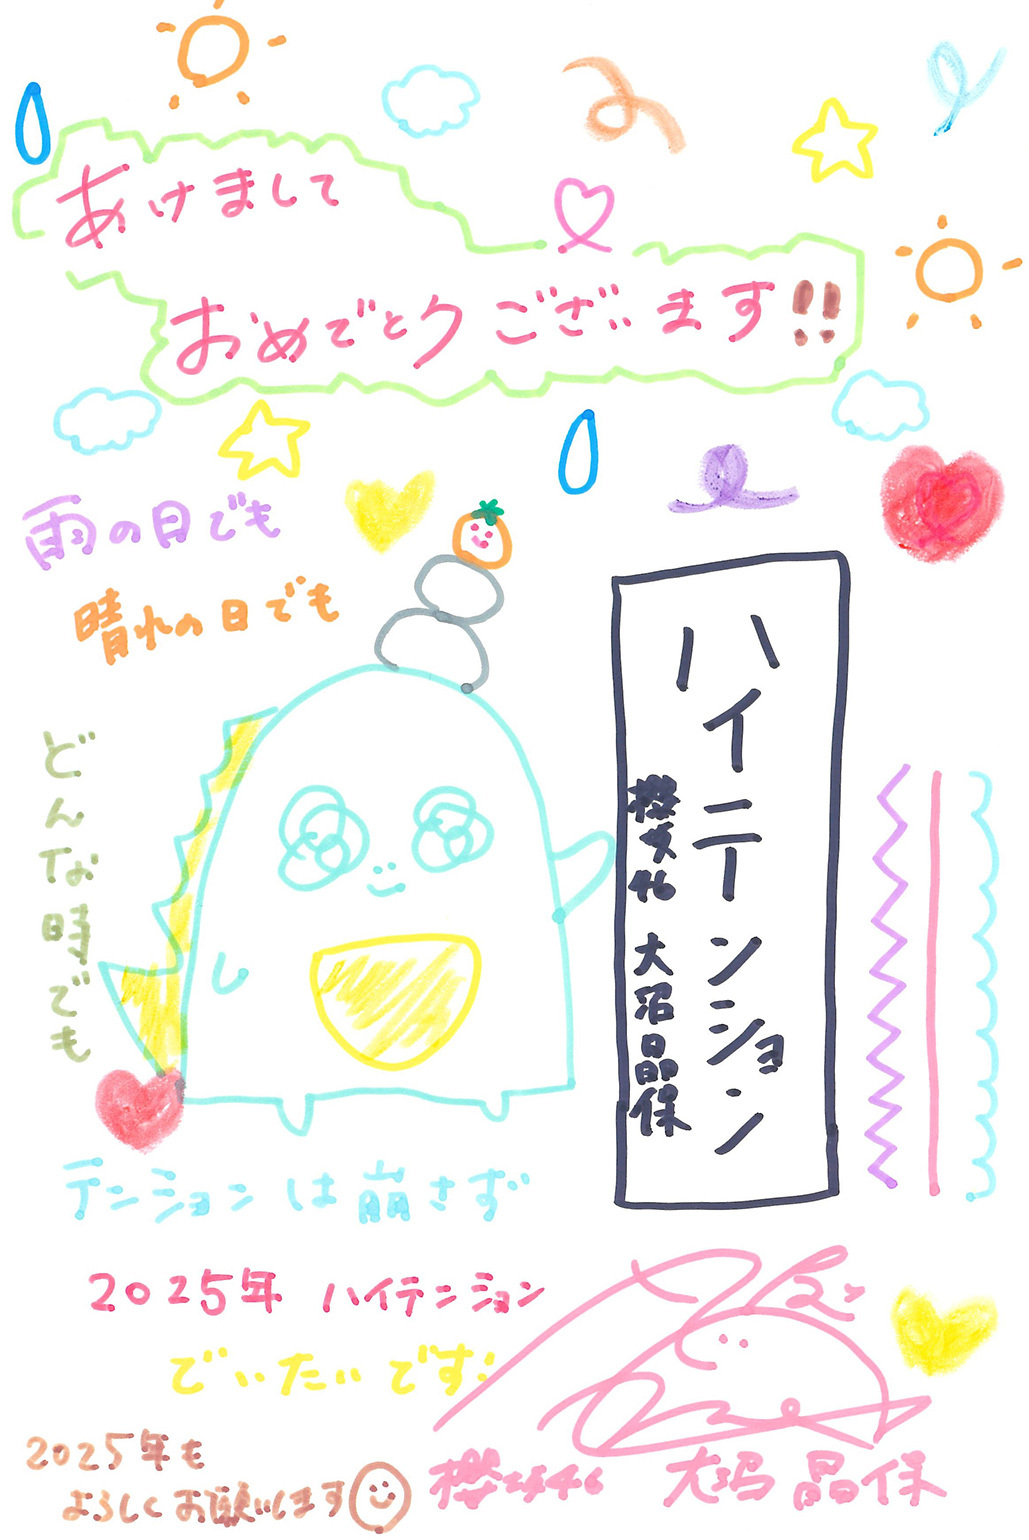 あけまして
おめでとうございます!!
雨の日でも
晴れの日でも
どんな時でも
ハイテンション
櫻坂46 大沼晶保
テンションは崩さず
2025年 ハイテンション
でいたいです!
2025年も
よろしくお願いします
櫻坂46 大沼晶保